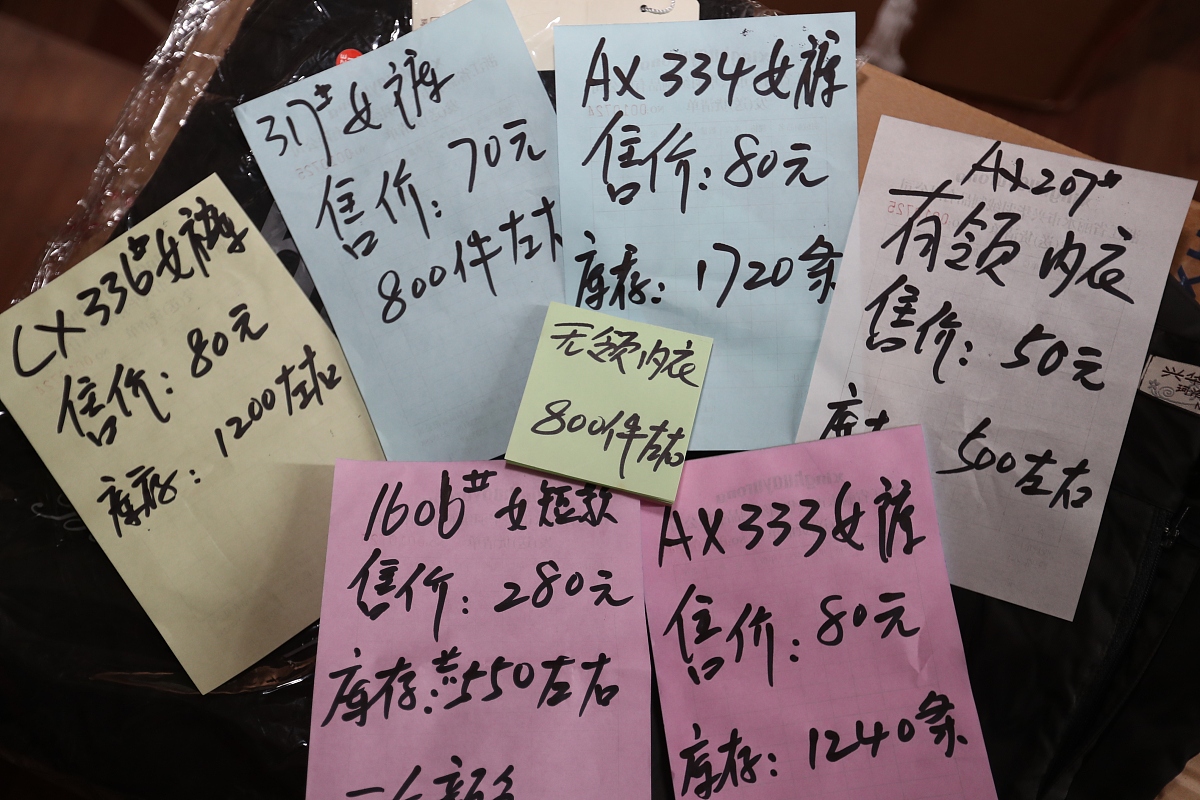 CX336#女裤
售价：80元
库存：1200左右
317#女裤
售价：70元
800件左右
AX334女裤
售价：80元
库存：1720条
AX207#
有领内衣
售价：50元
500左右
无领内衣
800件左右
1606#女短款
售价：280元
库存：550左右
AX333女裤
售价：80元
库存：1240条